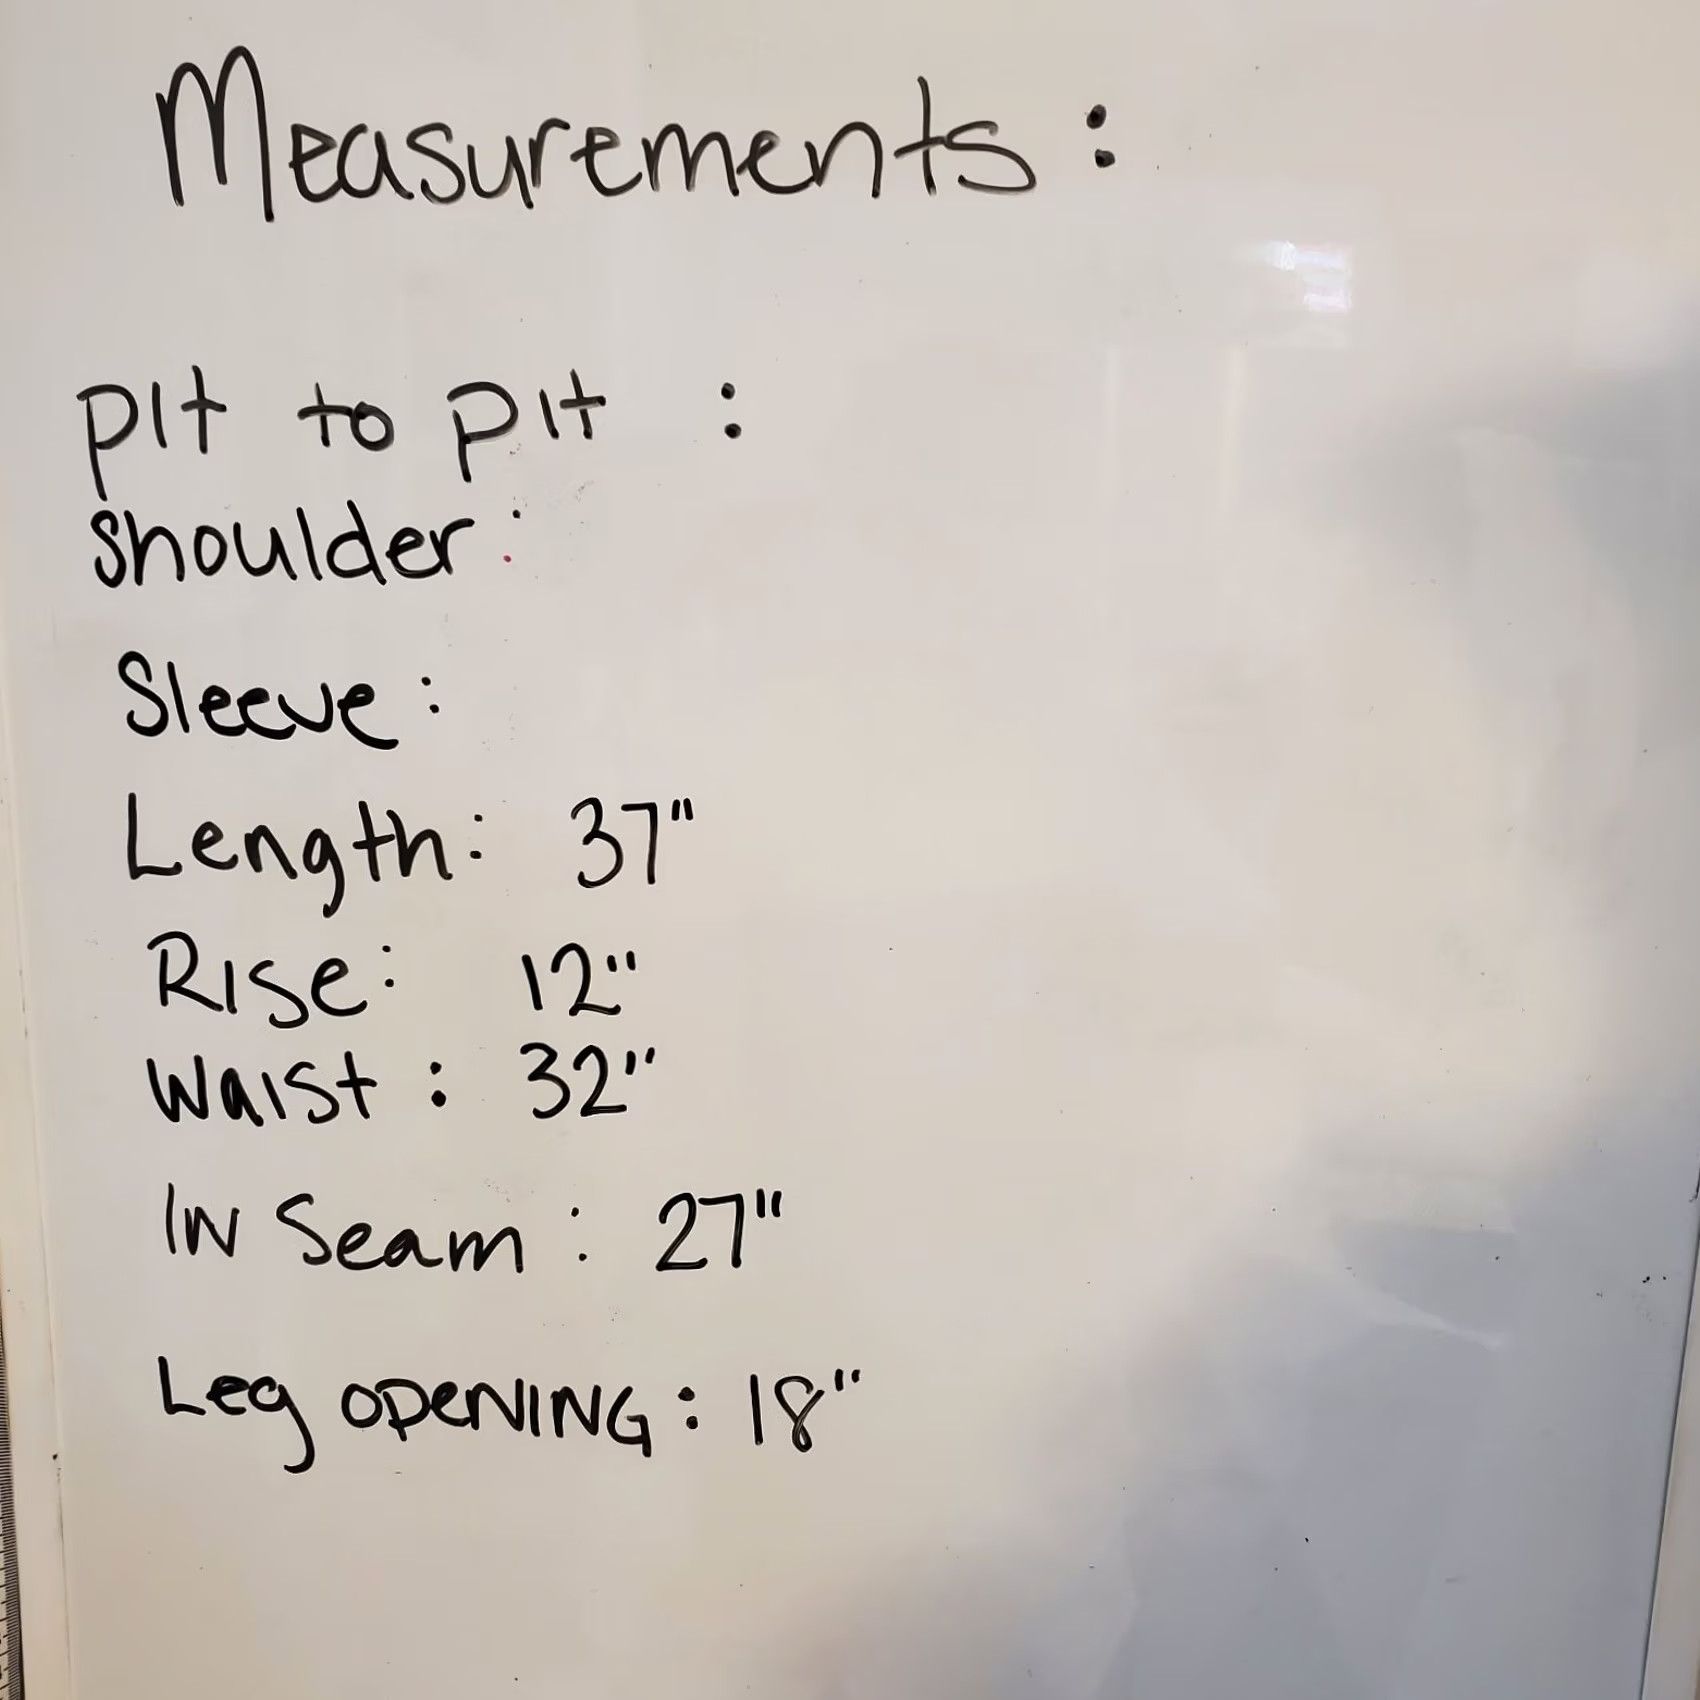 Measurements :
pit to pit :
shoulder :
Sleeve :
Length : 37"
Rise : 12"
Waist : 32"
IN Seam : 27"
Leg OPENING : 18"